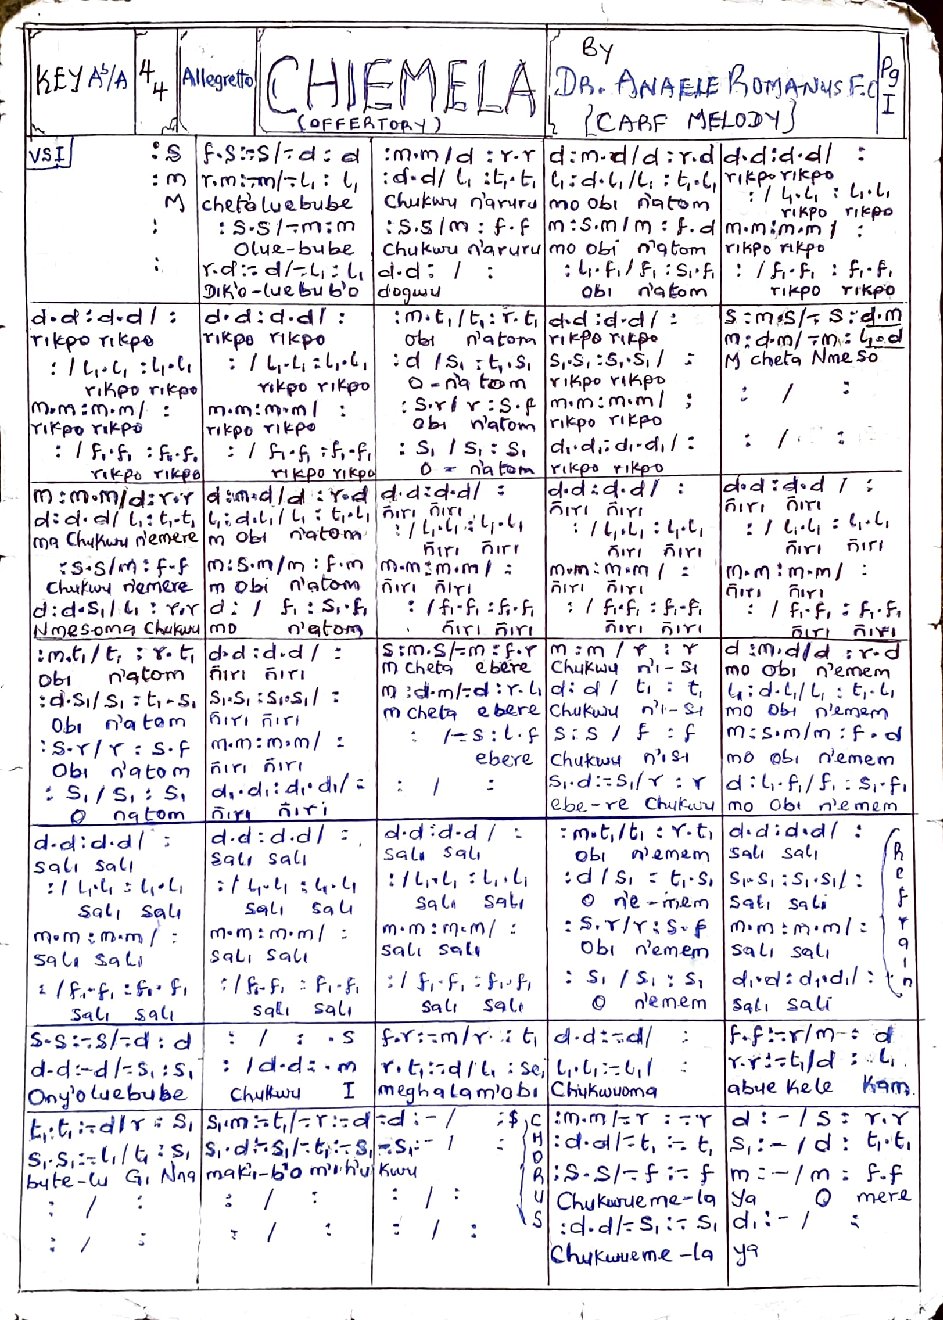 KEY Ab/A
4/4
Allegretto
CHIEMELA
(OFFERTORY)
BY
DR. ANAELE ROMANUS F.C
[CARF MELODY]
Pg I
VSI
: s | f.s:-.s/-.d : d | :m.m/d : r.r | d:m.d/d : r.d | d.d:d.d/ :
: m | r.m:-.m/-.l₁ : l₁ | :d.d/ l₁ :t₁.t₁ | l₁:d.l₁/l₁ : t₁.l₁ | rikpo rikpo
M | cheta luebube | Chukwu n'aruru | mo obi n'atom | : / l₁.l₁ : l₁.l₁
rikpo rikpo
: | : s.s/-.m:m | :s.s/m : f.f | m:s.m/m : f.d | m.m:m.m/ :
Olue-bube | Chukwu n'aruru | mo obi n'atom | rikpo rikpo
: | r.d:-.d/-.l₁ : l₁ | d.d: / : | : l₁.f₁/f₁ : s₁.f₁ | : / f₁.f₁ : f₁.f₁
Dik'o-luebub'o | dogwu | obi n'atom | rikpo rikpo
d.d:d.d/ : | d.d:d.d/ : | :m.t₁/t₁:r.t₁ | d.d:d.d/ : | s:m.s/-.s:d.m
rikpo rikpo | rikpo rikpo | obi n'atom | rikpo rikpo | m:d.m/-.m:l₁.d
: / l₁.l₁ : l₁.l₁ | : / l₁.l₁:l₁.l₁ | :d /s₁ : t₁.s₁ | s₁.s₁:s₁.s₁/ : | M cheta Nmeso
rikpo rikpo | rikpo rikpo | O-na tom | rikpo rikpo | : / :
m.m:m.m/ : | m.m:m.m/ : | : s.r/r : s.f | m.m:m.m/ :
rikpo rikpo | rikpo rikpo | obi n'atom | rikpo rikpo
: / f₁.f₁ : f₁.f₁ | : / f₁.f₁ : f₁.f₁ | : s₁ / s₁ : s₁ | d₁.d₁:d₁.d₁/ : | : / :
rikpo rikpo | rikpo rikpo | O - n'atom | rikpo rikpo
m:m.m/d:r.r | d:m.d/d : r.d | d.d:d.d/ : | d.d:d.d/ : | d.d:d.d/ :
d:d.d/ l₁:t₁.t₁ | l₁:d.l₁/l₁ : t₁.l₁ | ñiri ñiri | ñiri ñiri | ñiri ñiri
ma Chukwu n'emere | m obi n'atom | : / l₁.l₁ : l₁.l₁ | : / l₁.l₁ : l₁.l₁ | : / l₁.l₁ : l₁.l₁
ñiri ñiri | ñiri ñiri | ñiri ñiri
:s.s/m : f.f | m:s.m/m : f.m | m.m:m.m/ : | m.m:m.m/ : | m.m:m.m/ :
Chukwu n'emere | m obi n'atom | ñiri ñiri | ñiri ñiri | ñiri ñiri
d:d.s₁/l₁ : r.r | d: / f₁ : s₁.f₁ | : / f₁.f₁ : f₁.f₁ | : / f₁.f₁ : f₁.f₁ | : / f₁.f₁ : f₁.f₁
Nmesoma Chukwu | mo n'atom | ñiri ñiri | ñiri ñiri | ñiri ñiri
:m.t₁/t₁ : r.t₁ | d.d:d.d/ : | s:m.s/-.m:f.r | m:m/r : r | d:m.d/d : r.d
Obi n'atom | ñiri ñiri | m cheta ebere | Chukwu n'i-si | mo obi n'emem
:d.s₁/s₁ : t₁.s₁ | s₁.s₁:s₁.s₁/ : | m:d.m/-.d:r.l₁ | d:d/ t₁ : t₁ | l₁:d.l₁/l₁ : t₁.l₁
Obi n'atom | ñiri ñiri | m cheta ebere | Chukwu n'i-si | mo obi n'emem
:s.r/r : s.f | m.m:m.m/ : | : /-.s:l.f | s:s/f : f | m:s.m/m:f.d
Obi n'atom | ñiri ñiri | ebere | Chukwu n'isi | mo obi n'emem
: s₁ / s₁ : s₁ | d₁.d₁:d₁.d₁/ : | : / : | s₁.d:-.s₁/r : r | d:l₁.f₁/f₁ : s₁.f₁
O natom | ñiri ñiri | ebe-re Chukwu | mo obi n'emem
d.d:d.d/ : | d.d:d.d/ : | d.d:d.d/ : | :m.t₁/t₁ : r.t₁ | d.d:d.d/ :
Sali Sali | Sali Sali | Sali Sali | obi n'emem | Sali Sali
: / l₁.l₁ : l₁.l₁ | : / l₁.l₁ : l₁.l₁ | : / l₁.l₁ : l₁.l₁ | :d / s₁ : t₁.s₁ | s₁.s₁:s₁.s₁/ :
Sali Sali | Sali Sali | Sali Sali | O n'e-mem | Sali Sali
m.m:m.m/ : | m.m:m.m/ : | m.m:m.m/ : | : s.r/r : s.f | m.m:m.m/ :
Sali Sali | Sali Sali | Sali Sali | Obi n'emem | Sali Sali
: / f₁.f₁ : f₁.f₁ | : / f₁.f₁ : f₁.f₁ | : / f₁.f₁ : f₁.f₁ | : s₁ / s₁ : s₁ | d₁.d₁:d₁.d₁/ :
Sali Sali | Sali Sali | Sali Sali | O n'emem | Sali Sali
Refrain
s.s:-.s/-.d : d | : / : .s | f.r:-.m/r : t₁ | d.d:-.d/ : | f.f:-.r/m-: d
d.d:-.d/-.s₁ : s₁ | : /d.d: .m | r.t₁:-.d/l₁ : se₁ | l₁.l₁:-.l₁/ : | r.r:-.t₁/d : l₁
Ony'oluebube | Chukwu I | meghalam'obi | Chukwuoma | abye kele Kam
t₁.t₁:-.d/r : s₁ | s₁.m:-.t₁/-.r:-.d | -d:-/ :S | :m.m/-.r :-.r | d:-/s : r.r
s₁.s₁:-.l₁/t₁ : s₁ | s₁.d:-.s₁/-.t₁:-.s₁ | -s₁:-/ : | :d.d/-.t₁ :-.t₁ | s₁:-/d : t₁.t₁
byte-lu Gi Nna | maki-b'o m'i h'u | kwu | :s.s/-.f :-.f | m:-/m : f.f
: / : | : / : | : / : | Chukwueme-la | ya O mere
: / : | : / : | : / : | :d.d/-.s₁ :-.s₁ | d₁:-/ :
Chukwueme-la | ya
CHORUS